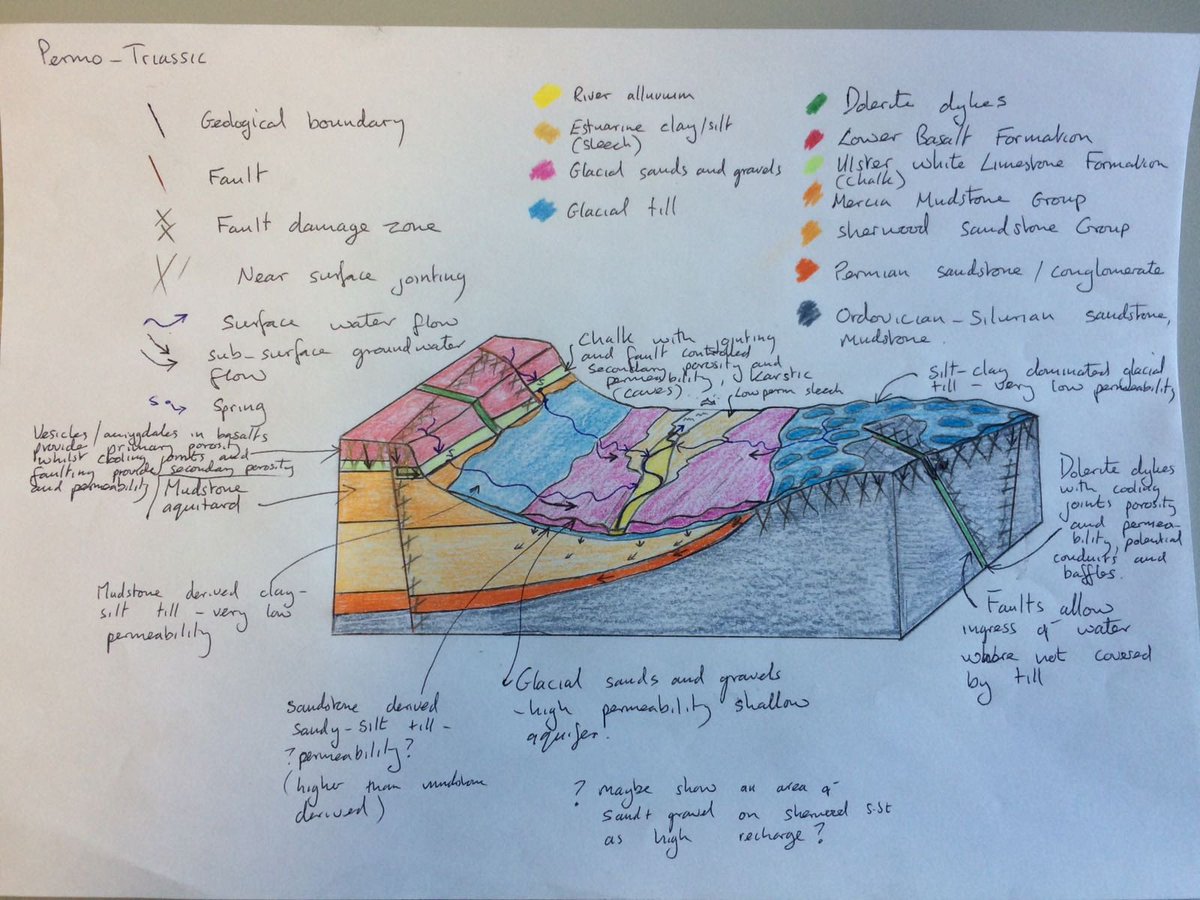 Permo-Triassic
Geological boundary
Fault
Fault damage zone
Near surface jointing
Surface water flow
sub-surface groundwater
flow
s Spring
River alluvium
Estuarine clay/silt
(sleech)
Glacial sands and gravels
Glacial till
Dolerite dykes
Lower Basalt Formation
Ulster White Limestone Formation
(chalk)
Mercia Mudstone Group
Sherwood Sandstone Group
Permian sandstone/conglomerate
Ordovician-Silurian sandstone,
mudstone.
Chalk with jointing
and fault controlled
secondary porosity and
permeability, karstic
(caves).
Low perm sleech
Silt-clay dominated glacial
till - very low permeability
Vesicles/amygdales in basalts
provide primary porosity
whilst cooling joints and
faulting provide secondary porosity
and permeability
Mudstone
aquitard
s
s
Dolerite dykes
with cooling
joints porosity
and permea-
bility, potential
conduits and
baffles.
Mudstone derived clay-
silt till - very low
permeability
Faults allow
ingress of water
where not covered
by till
Sandstone derived
sandy-silt till -
?permeability?
(higher than mudstone
derived)
Glacial sands and gravels
- high permeability shallow
aquifer.
? maybe show an area of
sand + gravel on sherwood s.st
as high recharge?